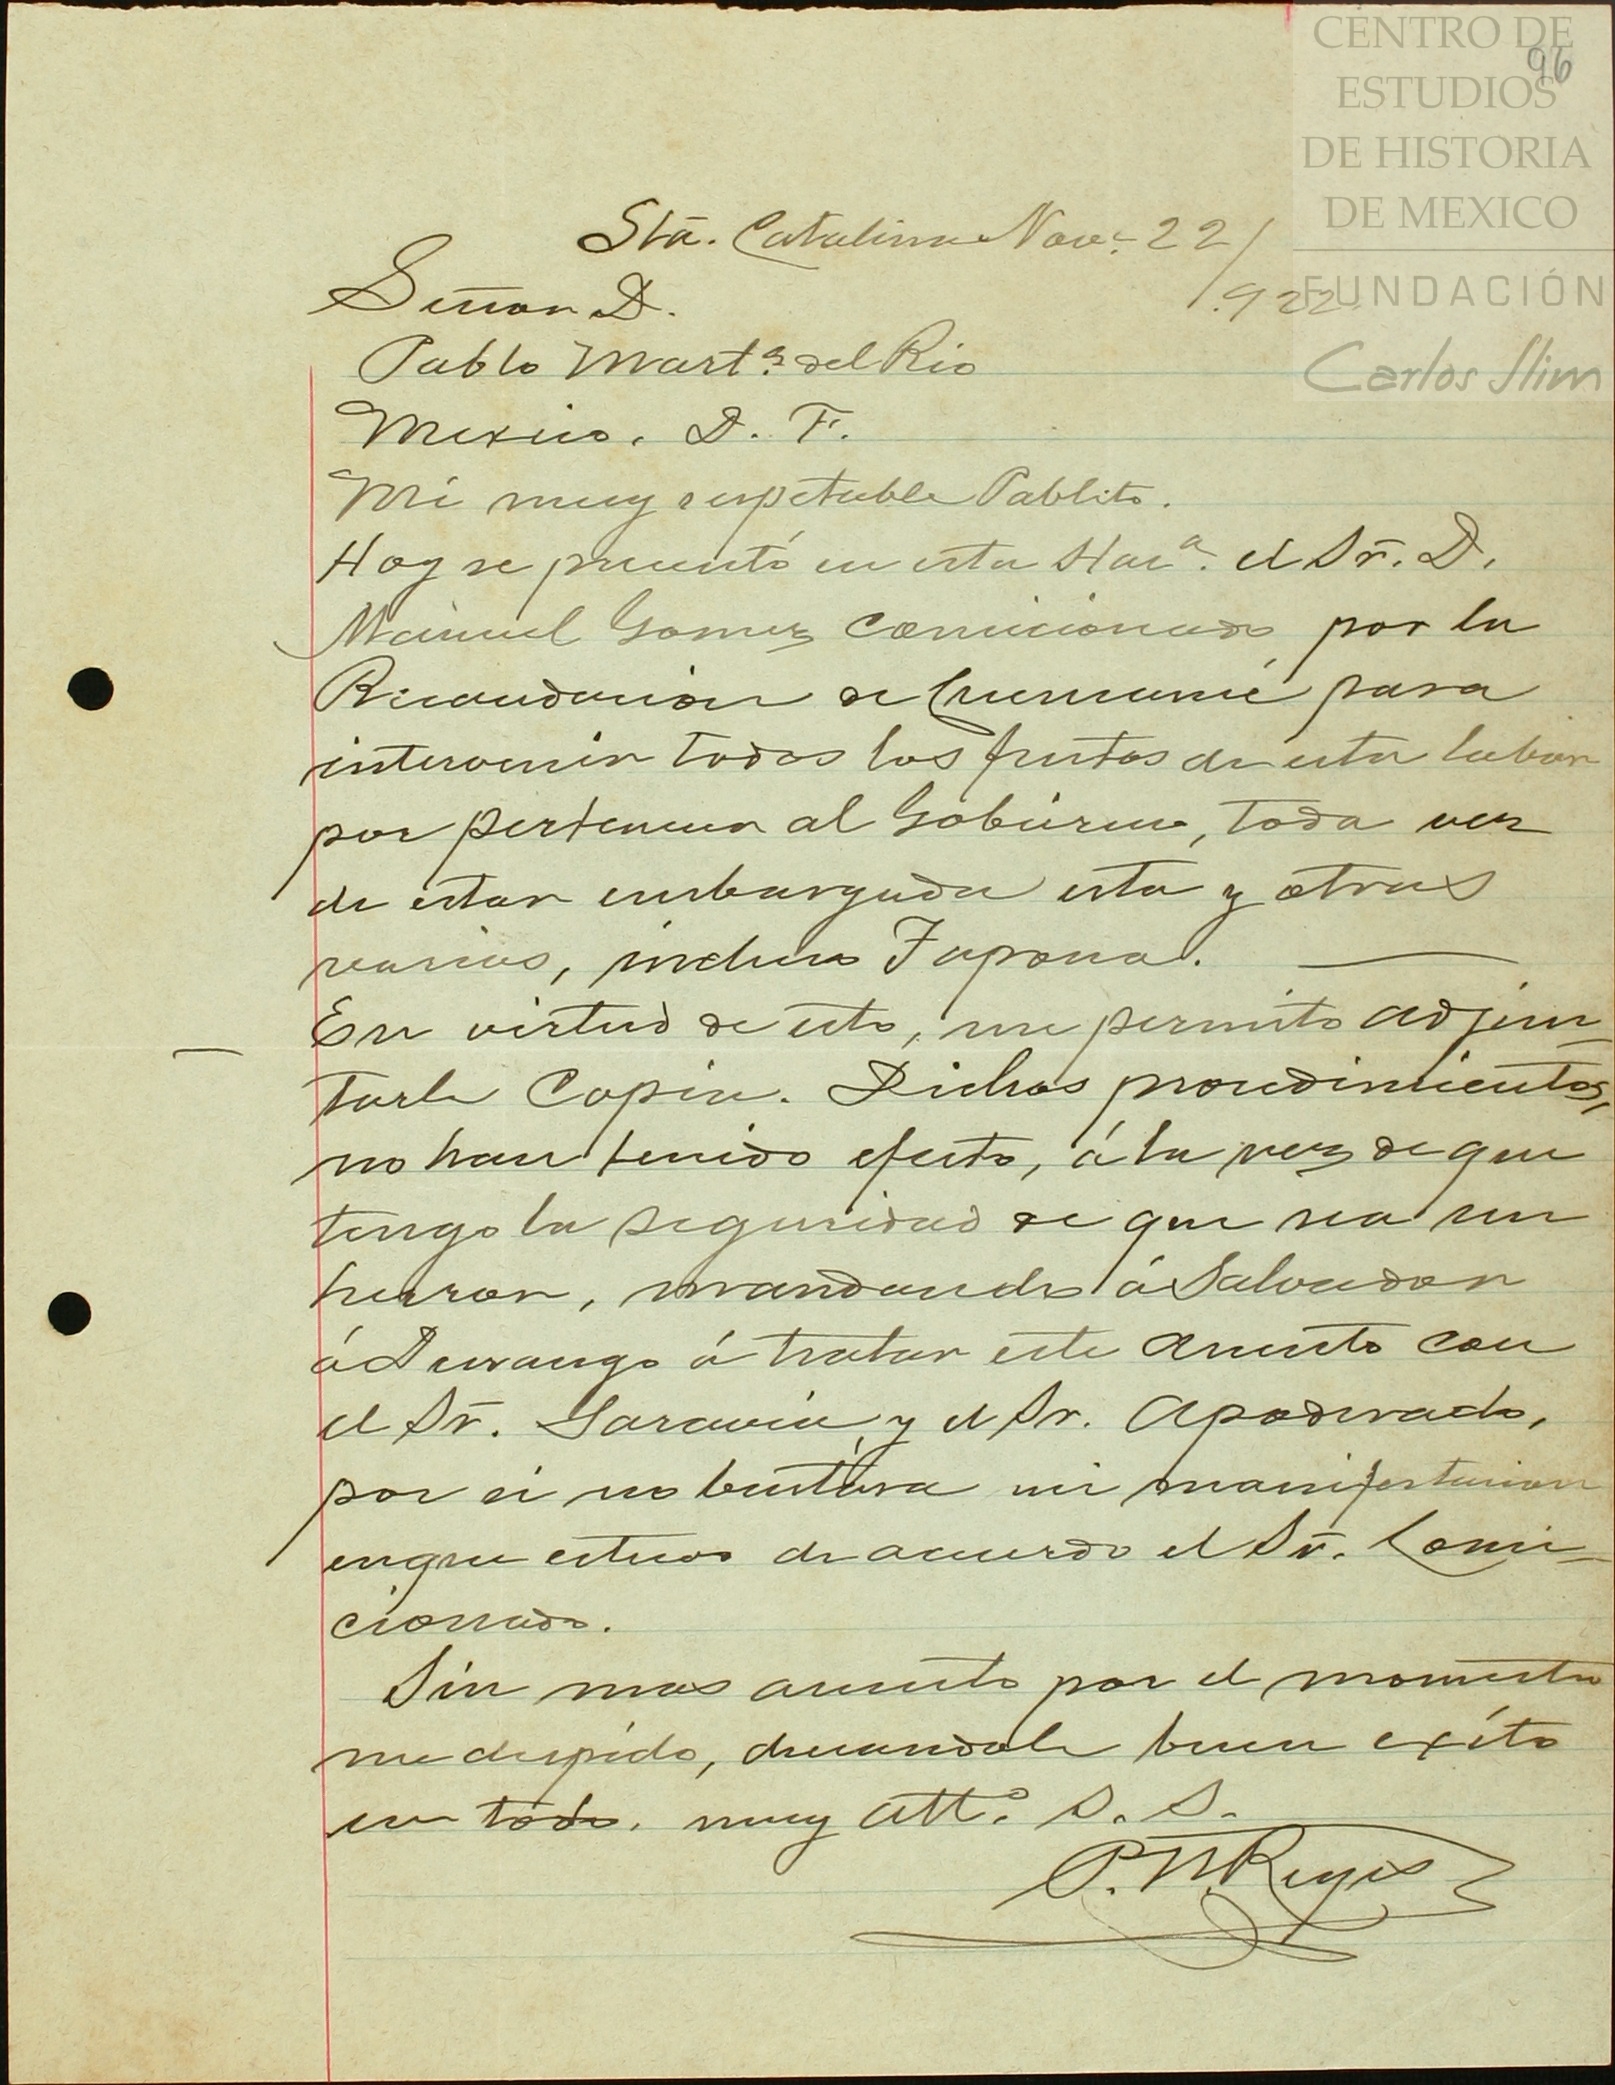 CENTRO DE
ESTUDIOS
DE HISTORIA
DE MEXICO
FUNDACIÓN
Carlos Slim
96
Sta. Catalina Nove. 22/
/922.
Señor D.
Pablo Martz. del Rio
Mexico. D. F.
Mi muy respetable Pablito.
Hoy se presentó en esta Haca. el Sr. D.
Manuel Gomez Comicionado por la
Recaudacion de Cuencamé para
intervenir todos los frutos de esta labor
por pertenecer al Gobierno, toda vez
de estar embargada esta y otras
varias, incluso Tapona.
En virtud de esto, me permito adjun-
tarle Copia. Dichos procedimientos,
no han tenido efecto, á la vez de que
tengo la seguridad de que sea un
herror, mandando á Salvador
á Durango á tratar este asunto con
el Sr. Saravia y el Sr. Apoderado,
por si no bastára mi manifestacion
enque estuvo de acuerdo el Sr. Comi-
cionado.
Sin mas asunto por el momento
me despido, deceandole buen exíto
en todo. muy Atto. S. S.
P. N. Reyes